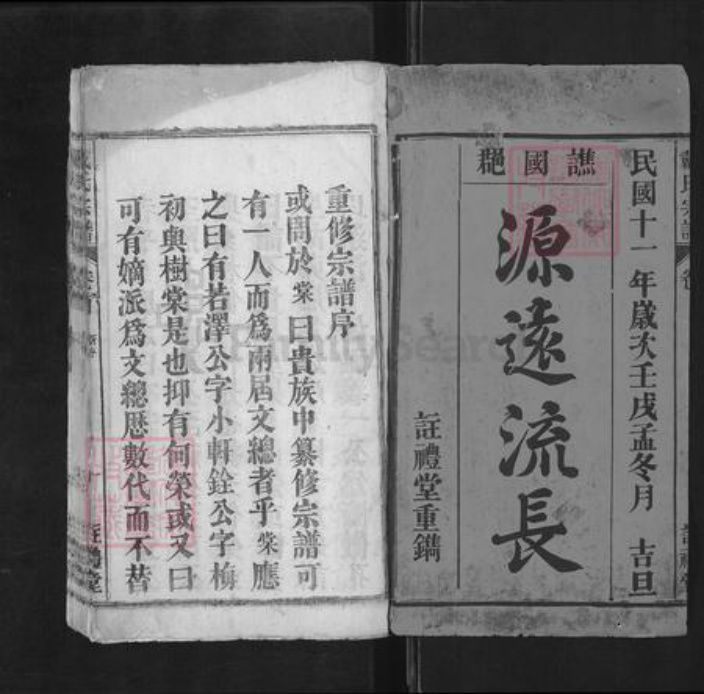 民國十一年歲次壬戌孟冬月 吉旦
譙國郡
源遠流長
註禮堂重鐫
重修宗譜序
或問於棠曰貴族中纂修宗譜可
有一人而爲兩屆文總者乎棠應
之曰有若澤公字小軒銓公字梅
初與樹棠是也抑有何榮或又曰
可有嫡派爲文總歷數代而不替